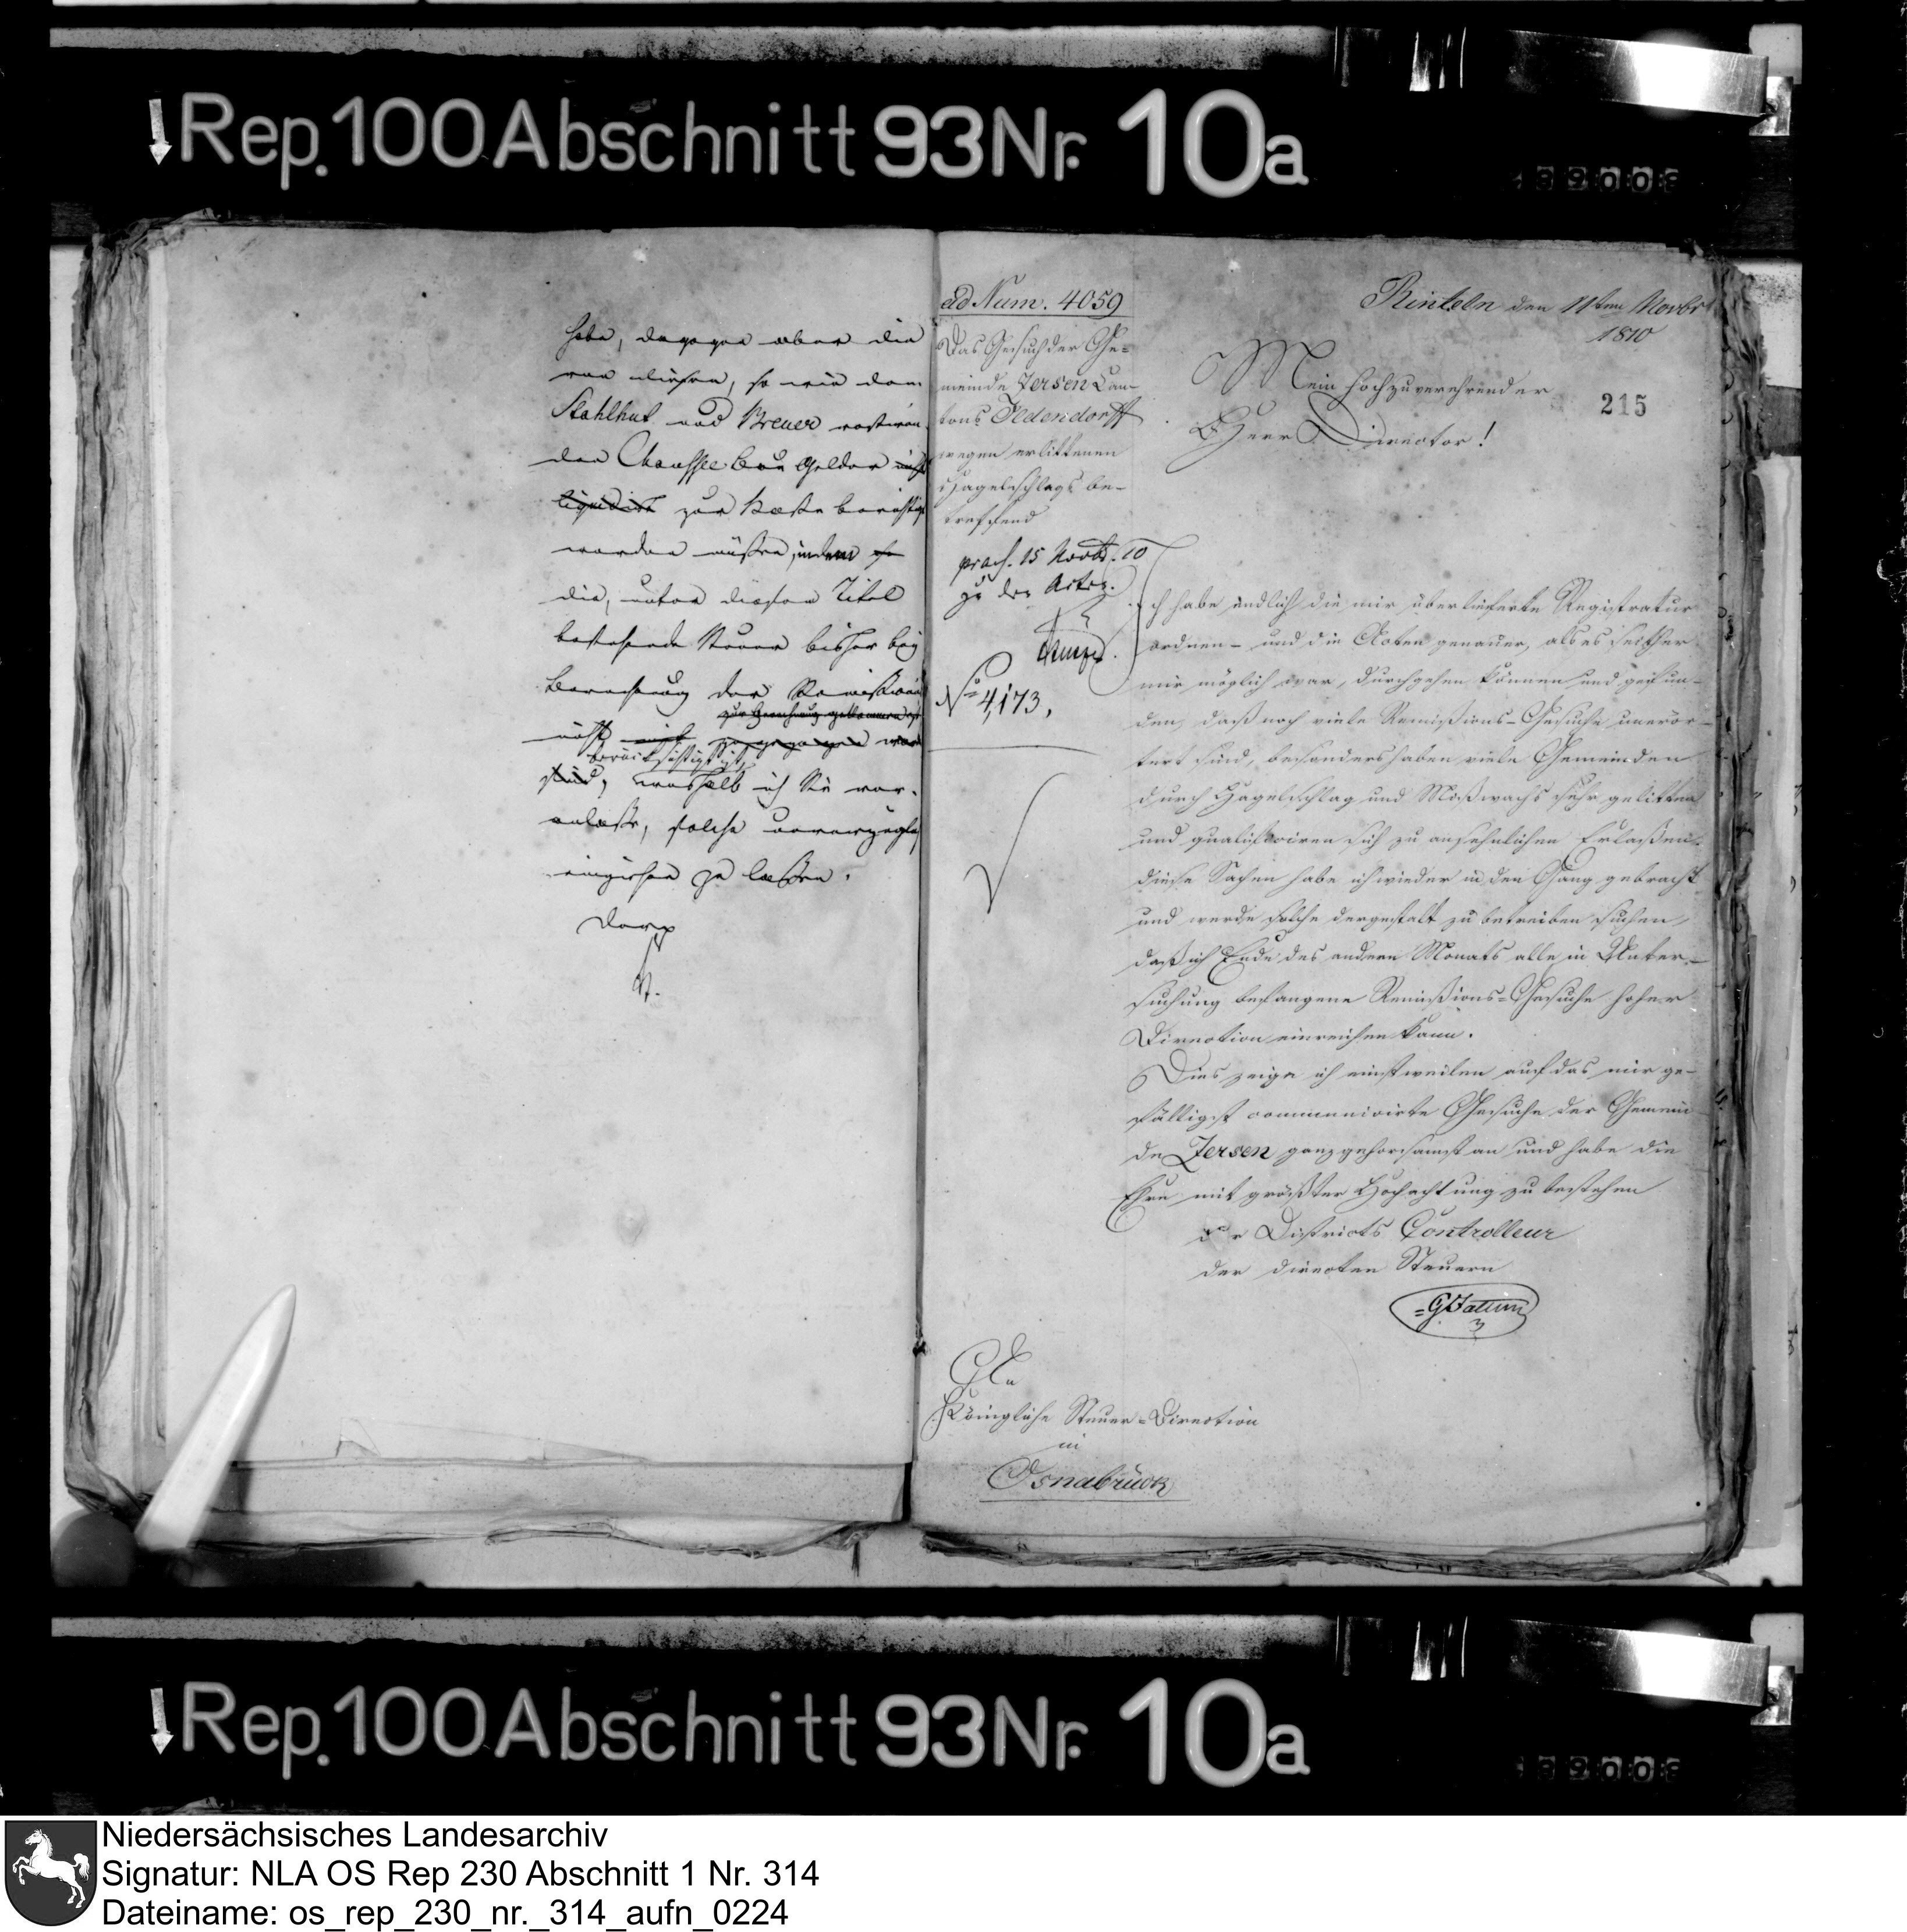 Rep. 100 Abschnitt 93 Nr. 10a
habe, dagegen aber die
von diesem, so wie dem
Stahlhut und Breuer restiren
den Chaussee bau Gelder nicht
liquidirt zur Kasse berichtigt
werden müßen, indem
die, unter diesem Titel
bestehende Steuer bisher bey
Berechnung der Remißionen
nicht
zur Hebung gekommen ist
berücksichtigt ist,
sind, weshalb ich Sie ver-
anlaße, solche unverzüglich
eingehen zu laßen.
ad Num. 4059
Das Gesuch der Ge-
meinde Jersen Can-
tons Oldendorff
wegen erlittenen
Hagelschlags be-
treffend
praes. 15 Novbr. 10
zu den Acten.
No 4,173,
Rinteln den 11ten Novbr
1810
215
Mein hochzuverehrender
Herr Director!
Ich habe endlich die mir überlieferte Registratur
ordnen- und die Acten genauer, als es seither
mir möglich war, durchgehen können und gefun-
den, daß noch viele Remißions-Gesuche unerör-
tert sind, besonders haben viele Gemeinden
durch Hagelschlag und Mißwachs sehr gelitten
und qualificiren sich zu ansehnlichen Erlaßen.
diese Sachen habe ich wieder in den Gang gebracht
und werde solche dergestalt zu betreiben suchen,
daß ich Ende des andern Monats alle in Unter-
suchung befangene Remißions-Gesuche hoher
Direction einreichen kann.
Dies zeige ich einstweilen auf das mir ge-
fälligst communicirte Gesuche der Gemein-
de Jersen ganz gehorsamst an und habe die
Ehre mit größter Hochachtung zu bestehen
der Districts Controlleur
der directen Steuern
An
Königliche Steuer-Direction
in
Osnabrück
Rep. 100 Abschnitt 93 Nr. 10a
Niedersächsisches Landesarchiv
Signatur: NLA OS Rep 230 Abschnitt 1 Nr. 314
Dateiname: os_rep_230_nr._314_aufn_0224